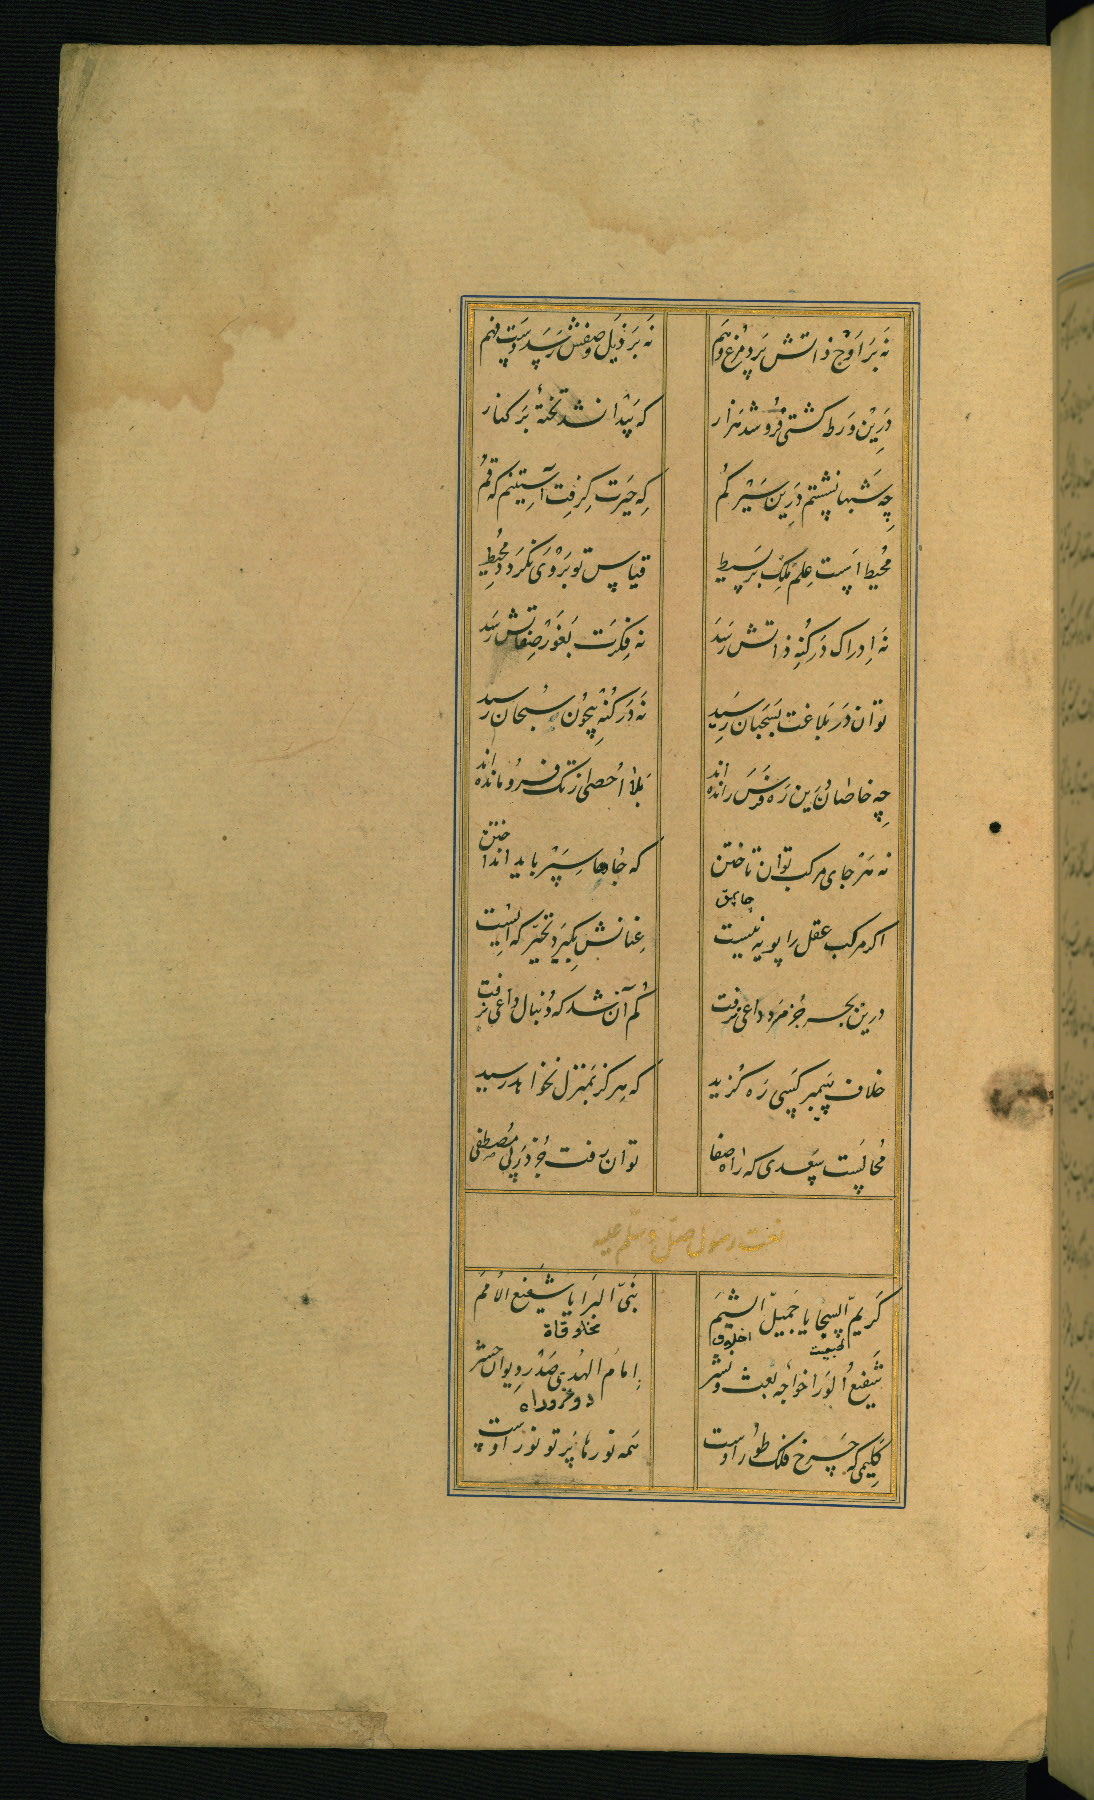 نه بر اوج ذاتش پرد مرغ وهم نه بر ذیل وصفش رسد دست فهم
درین ورطه کشتی فروشد هزار که پیدا نشد تختهٔ بر کنار
چه شبها نشستم درین سیر گم که حیرت گرفت آستینم که قم
محیط است علم ملک بر بسیط قیاس تو بر وی نگردد محیط
نه ادراک در کنه ذاتش رسد نه فکرت بغور صفاتش رسد
توان در بلاغت بسحبان رسید نه در کنه بیچون سبحان رسید
چه خاصان درین ره فرس رانده اند بلا احصی از تک فرو مانده اند
نه هر جای مرکب توان تاختن که جاها سپر باید انداختن
چاپمق
اگر مرکب عقل را پویه نیست عنانش بگیرد تحیر که ایست
درین بحر جز مرد داعی نرفت گم آن شد که دنبال داعی نرفت
خلاف پیمبر کسی ره گزید که هرگز بمنزل نخواهد رسید
محالست سعدی که راه صفا توان رفت جز در پی مصطفی
نعت رسول صلی و سلم علیه
کریم السجایا جمیل الشیم نبی البرایا شفیع الامم
طبیعت اخلاق مخلوقاة
شفیع الورا خواجه بعث و نشر امام الهدی صدر دیوان حشر
دوغرو راه
کلیمی که چرخ فلک طور اوست همه نورها پرتو نور اوست